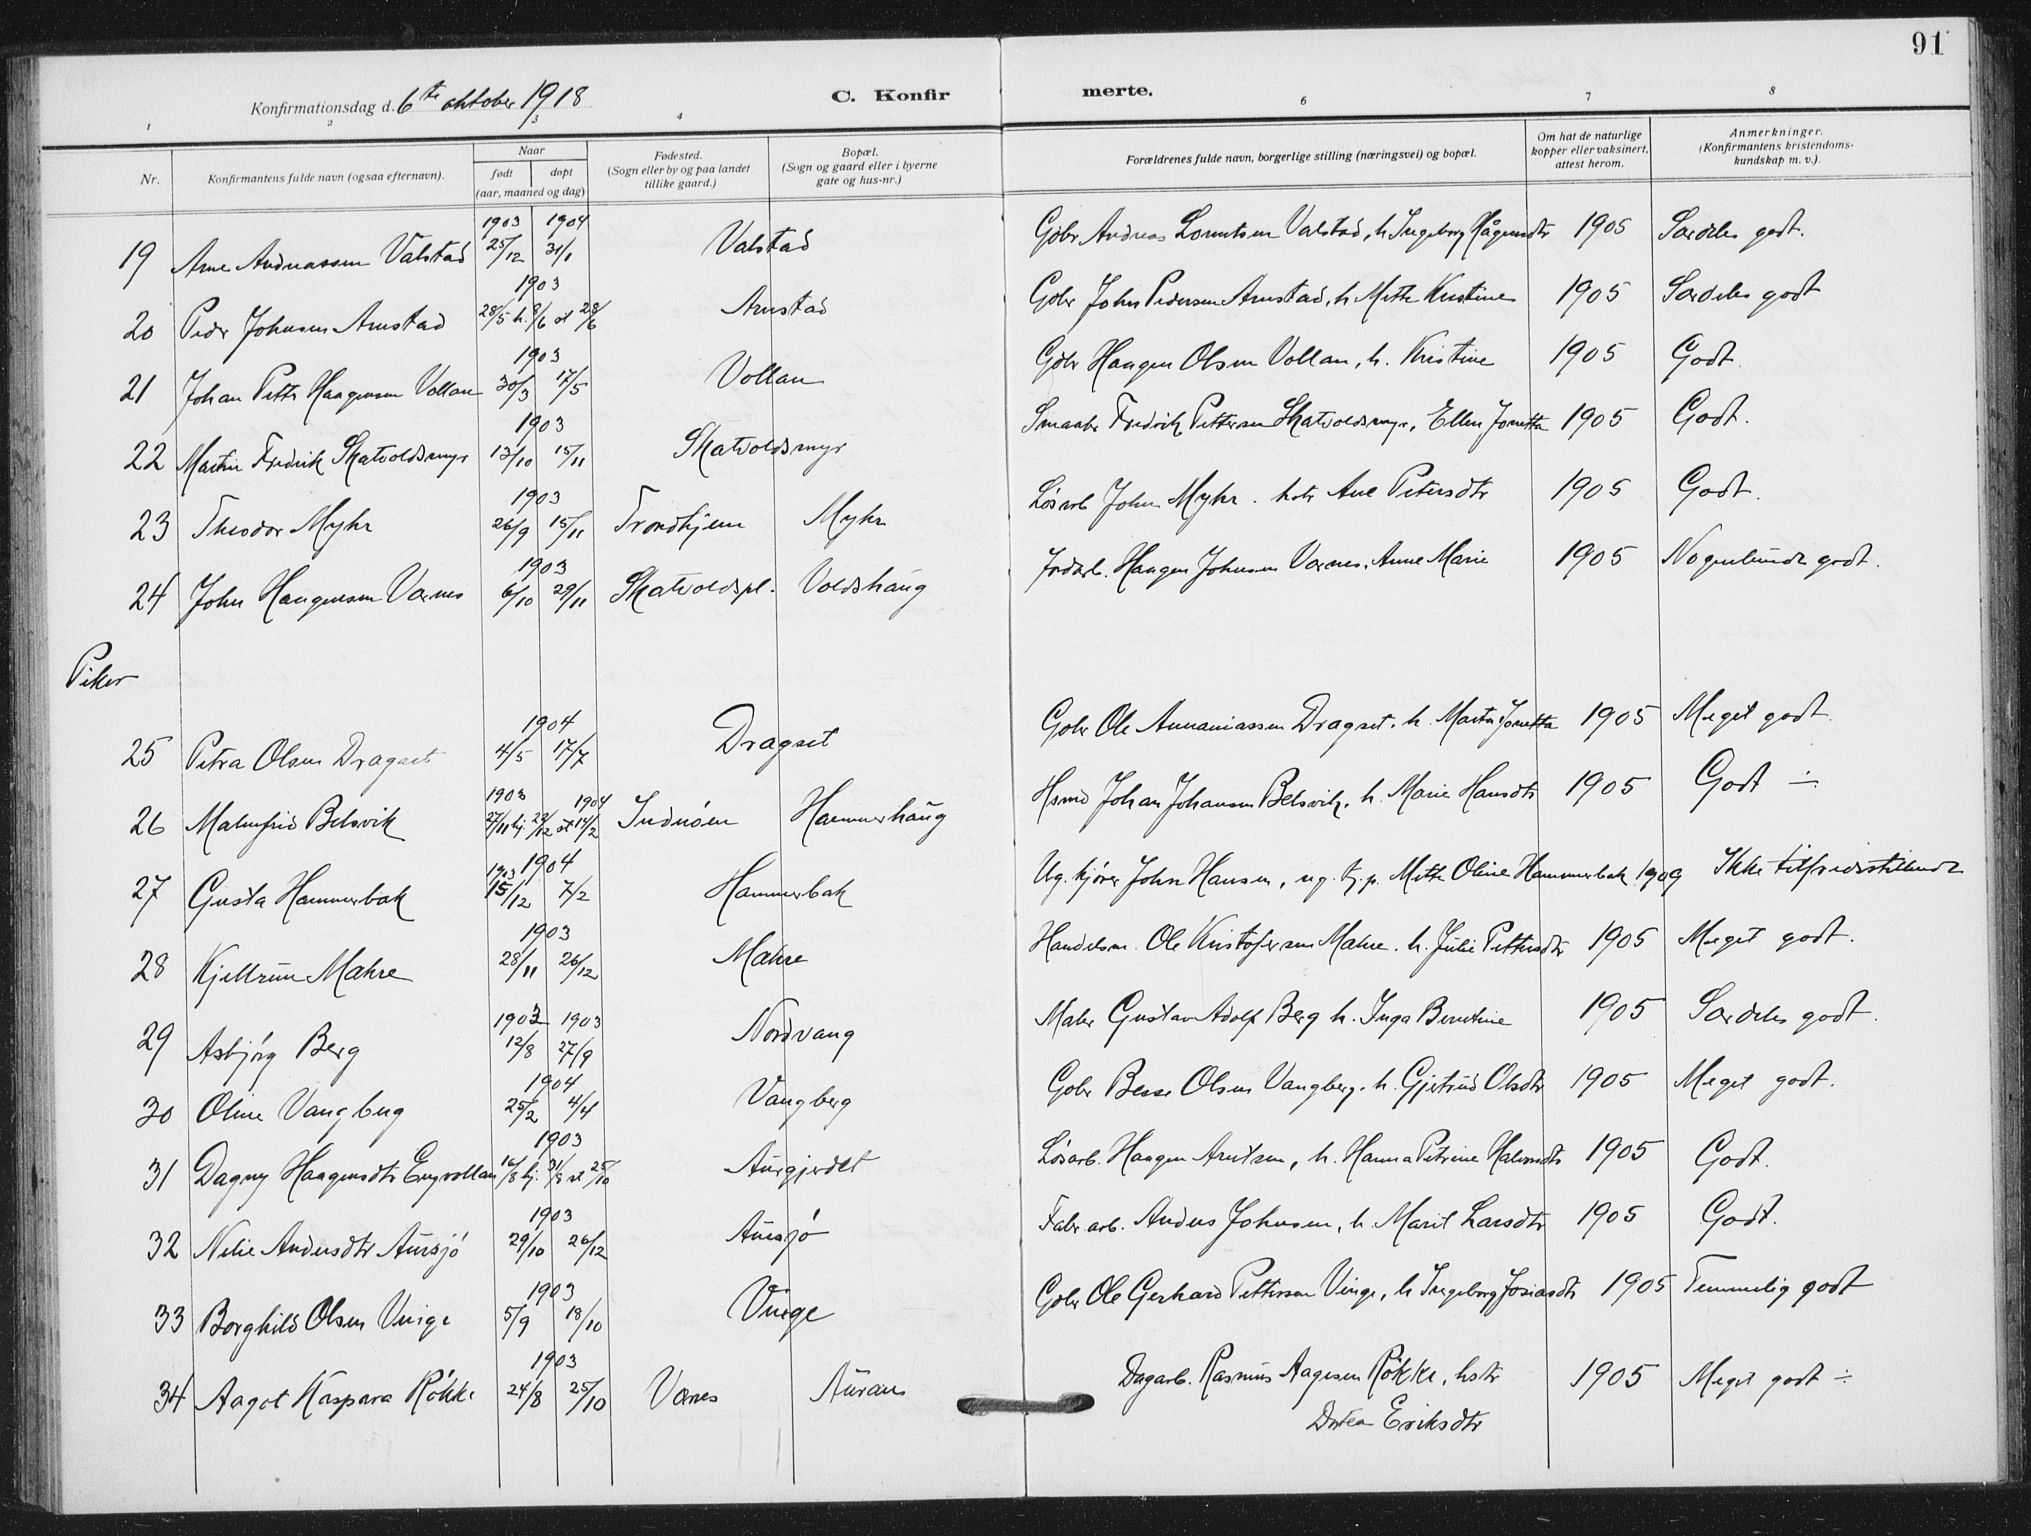 91
Konfirmationsdag d. 6te oktober 1918
C. Konfirmerte.
1 2 3 4 6 7 8
Nr. | Konfirmantens fulde navn (ogsaa efternavn). | Naar født døpt (aar, maaned og dag) | Fødested. (Sogn eller by og paa landet tillike gaard.) | Bopæl. (Sogn og gaard eller i byerne gate og hus-nr.) | Forældrenes fulde navn, borgerlige stilling (næringsvei) og bopæl. | Om hat de naturlige kopper eller vaksinert, attest herom. | Anmerkninger. (Konfirmantens kristendomskundskap m. v.).
19 Arne Andreassen Valstad 1903 25/12 1904 31/1 Valstad Gbr Andreas Lorntsen Valstad, h. Ingeborg Hågensdtr 1905 Særdeles godt.
20 Peder Johnsen Arnstad 1903 28/5 h. 8/6 st 28/6 Arnstad Gbr John Pedersen Arnstad, h. Mette Kristine 1905 Særdeles godt
21 Johan Petter Haagensen Vollan 1903 30/3 17/5 Vollan Gbr Haagen Olsen Vollan, h. Kristine 1905 Godt.
22 Martin Fredrik Skatvoldsmyr 1903 13/10 15/11 Skatvoldsmyr Smaabr Fredrik Pettersen Skatvoldsmyr, Ellen Jonetta 1905 Godt.
23 Theodor Myhr 1903 26/9 15/11 Trondhjem Myhr Løsarb John Myhr. hstr Ane Petersdtr 1905 Godt.
24 John Haagensen Værnes 1903 6/10 29/11 Skatvoldspl. Voldshaug Jordarb. Haagen Johnsen Værnes, Anne Marie 1905 Nogenlunde godt.
Piker
25 Petra Olsen Dragset 1904 4/5 17/7 Dragset Gbr Ole Annaniassen Dragset. h. Marta Jonetta 1905 Meget godt.
26 Malmfrid Belsvik 1903 27/11 hj. 22/12 1904 st 14/2 Inderøen Hammerhaug Hsmd Johan Johansen Belsvik, h. Marie Hansdtr 1905 Godt ÷
27 Gusta Hammerbak 1903 15/12 1904 7/2 Hammerbak Ug. kjører John Hansen, ug. tj. p. Mette Oline Hammerbak 1909 Ikke tilfredsstillende
28 Kjellrun Mæhre 1903 28/11 26/12 Mæhre Handelsm. Ole Kristofersen Mæhre. h. Julie Pettersdtr 1905 Meget godt.
29 Asbjørg Berg 1903 12/8 1903 27/9 Nordvang Maler Gustav Adolf Berg h. Inga Berntine 1905 Særdeles godt.
30 Oline Vangberg 1904 25/2 4/4 Vangberg Gbr Besse Olsen Vangberg. h. Gjetrud Olsdtr 1905 Meget godt.
31 Dagny Haagensdtr Engvollan 1903 16/8 hj. 31/8 st 25/10 Aurgjerdet Løsarb. Haagen Arntsen, h. Hanna Petrine Halvorsdtr 1905 Godt.
32 Nelie Andersdtr Aursjø 1903 29/10 26/12 Aursjø Fabr. arb. Anders Johnsen, h. Marit Larsdtr 1905 Godt.
33 Borghild Olsen Vinge 1903 5/9 18/10 Vinge Gbr Ole Gerhard Pettersen Vinge, h. Ingeborg Josiasdtr 1905 Temmelig godt
34 Aagot Kaspara Røkke 1903 24/8 25/10 Værnes Auran Dagarb. Rasmus Aagesen Røkke, hstr 1905 Meget godt ÷
Dortea Eriksdtr